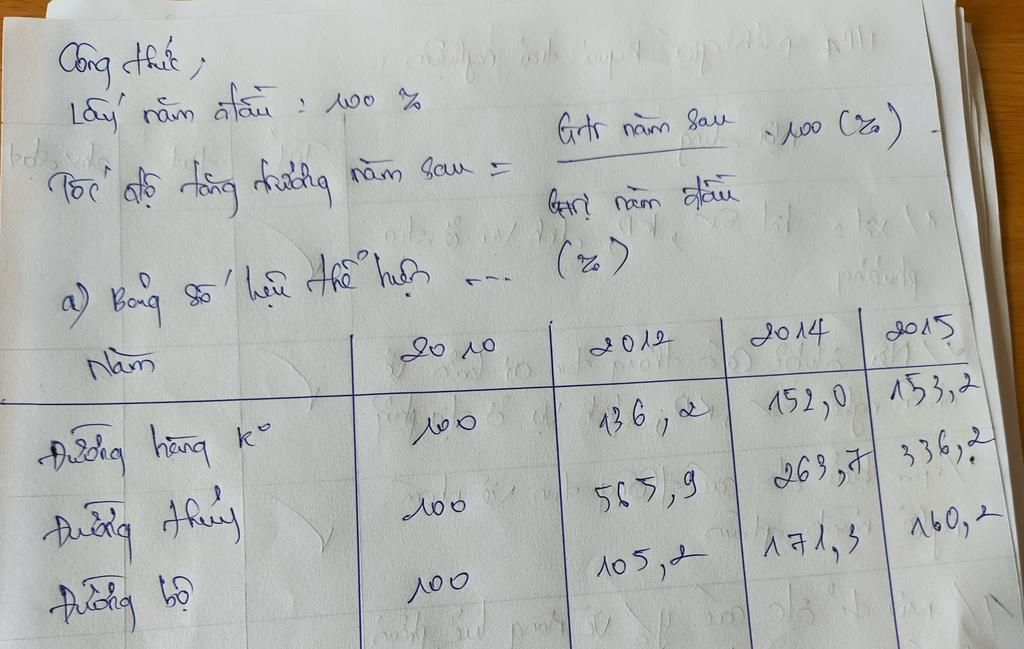 Công thức,
Lấy năm đầu : 100 %
Tốc độ tăng trưởng năm sau = Gtrị năm sau / Gtrị năm đầu . 100 (%)
a) Bảng số liệu thể hiện .... (%)
Năm 2010 2012 2014 2015
Đường hàng k° 100 136,2 152,0 153,2
Đường thủy 100 565,9 263,7 336,2
Đường bộ 100 105,2 171,3 160,2